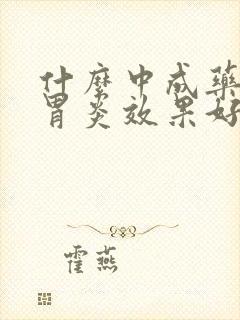 什麼中成藥
胃炎效果好
霍燕